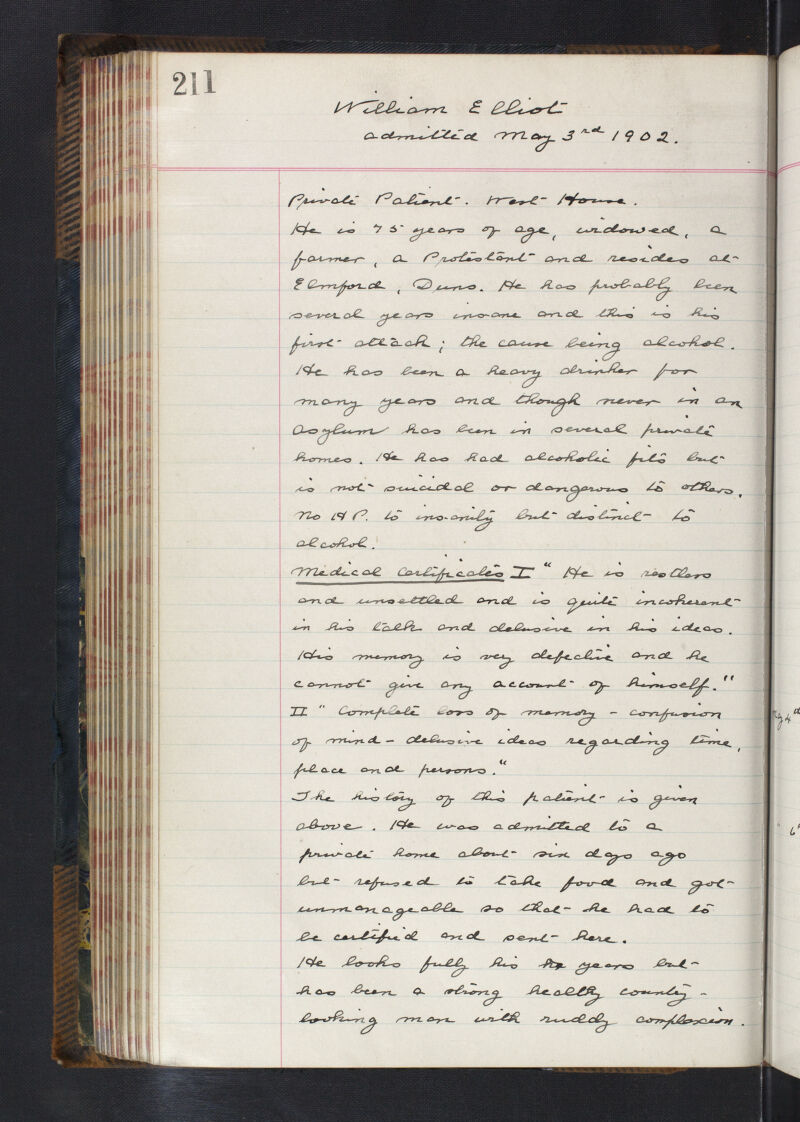 211
William Elliot
admitted May 3rd 1902.
Private Patient. West House.
He is 75 years of age, widowed, a
farmer, a Protestant and resides at
Elmford, Duns. He has probably been
several years insane and this is his
first attack; the cause being alcohol.
He has been a heavy drinker for
many years and though never in an
asylum has been in several private
homes. He has had alcoholic fits but
is not suicidal or dangerous to others.
No H.P. to insanity but distinct to
alcohol.
Medical Certificates I "He is restless
and unsettled and is quite incoherent
in his talk and delusive in his ideas.
His memory is very defective and he
cannot give any account of himself."
II "Complete loss of memory - confusion
of mind - delusive ideas regarding time,
place and persons."
The history of this patient is given
above. He was admitted to a
private home about six days ago
but refused to take food and got
unmanageable so that he had to
be certified and sent here.
He looks fully his years but
has been a strong healthy country-
looking man with ruddy complexion.